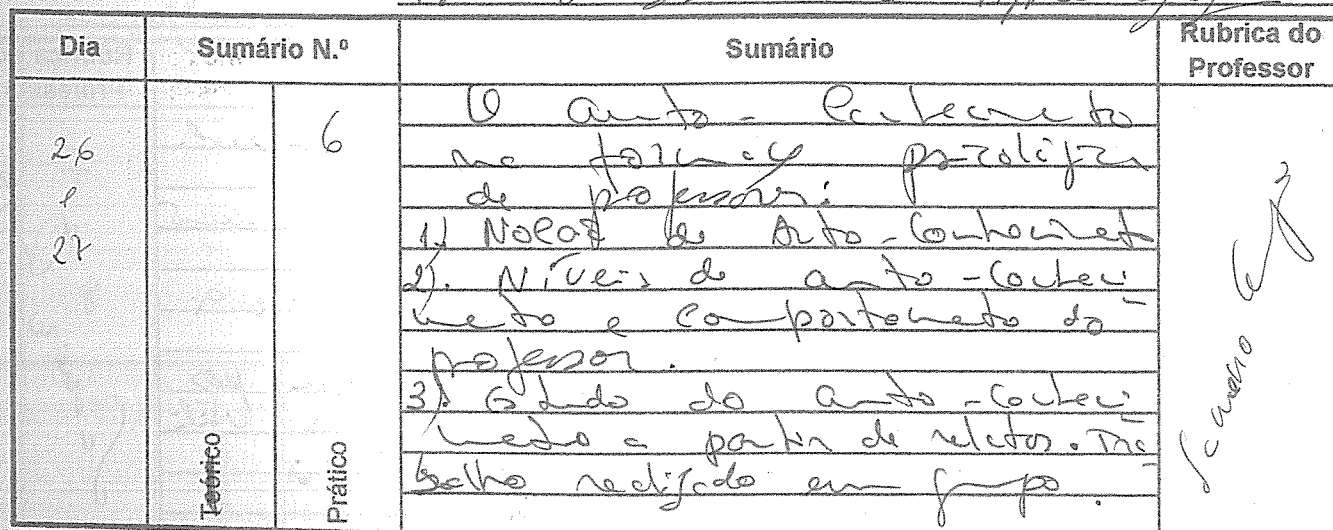 Dia Sumário N.º Sumário Rubrica do Professor
26 e 27
6
O auto-Conhecimento
na formação psicológica
de professores:
1) Noção de Auto-Conhecimento
2). Níveis de auto-Conheci
mento e comportamento do
professor.
3). Estudo do auto-Conheci
mento a partir de relatos. Tra
balho realizado em grupo.
Teórico
Prático